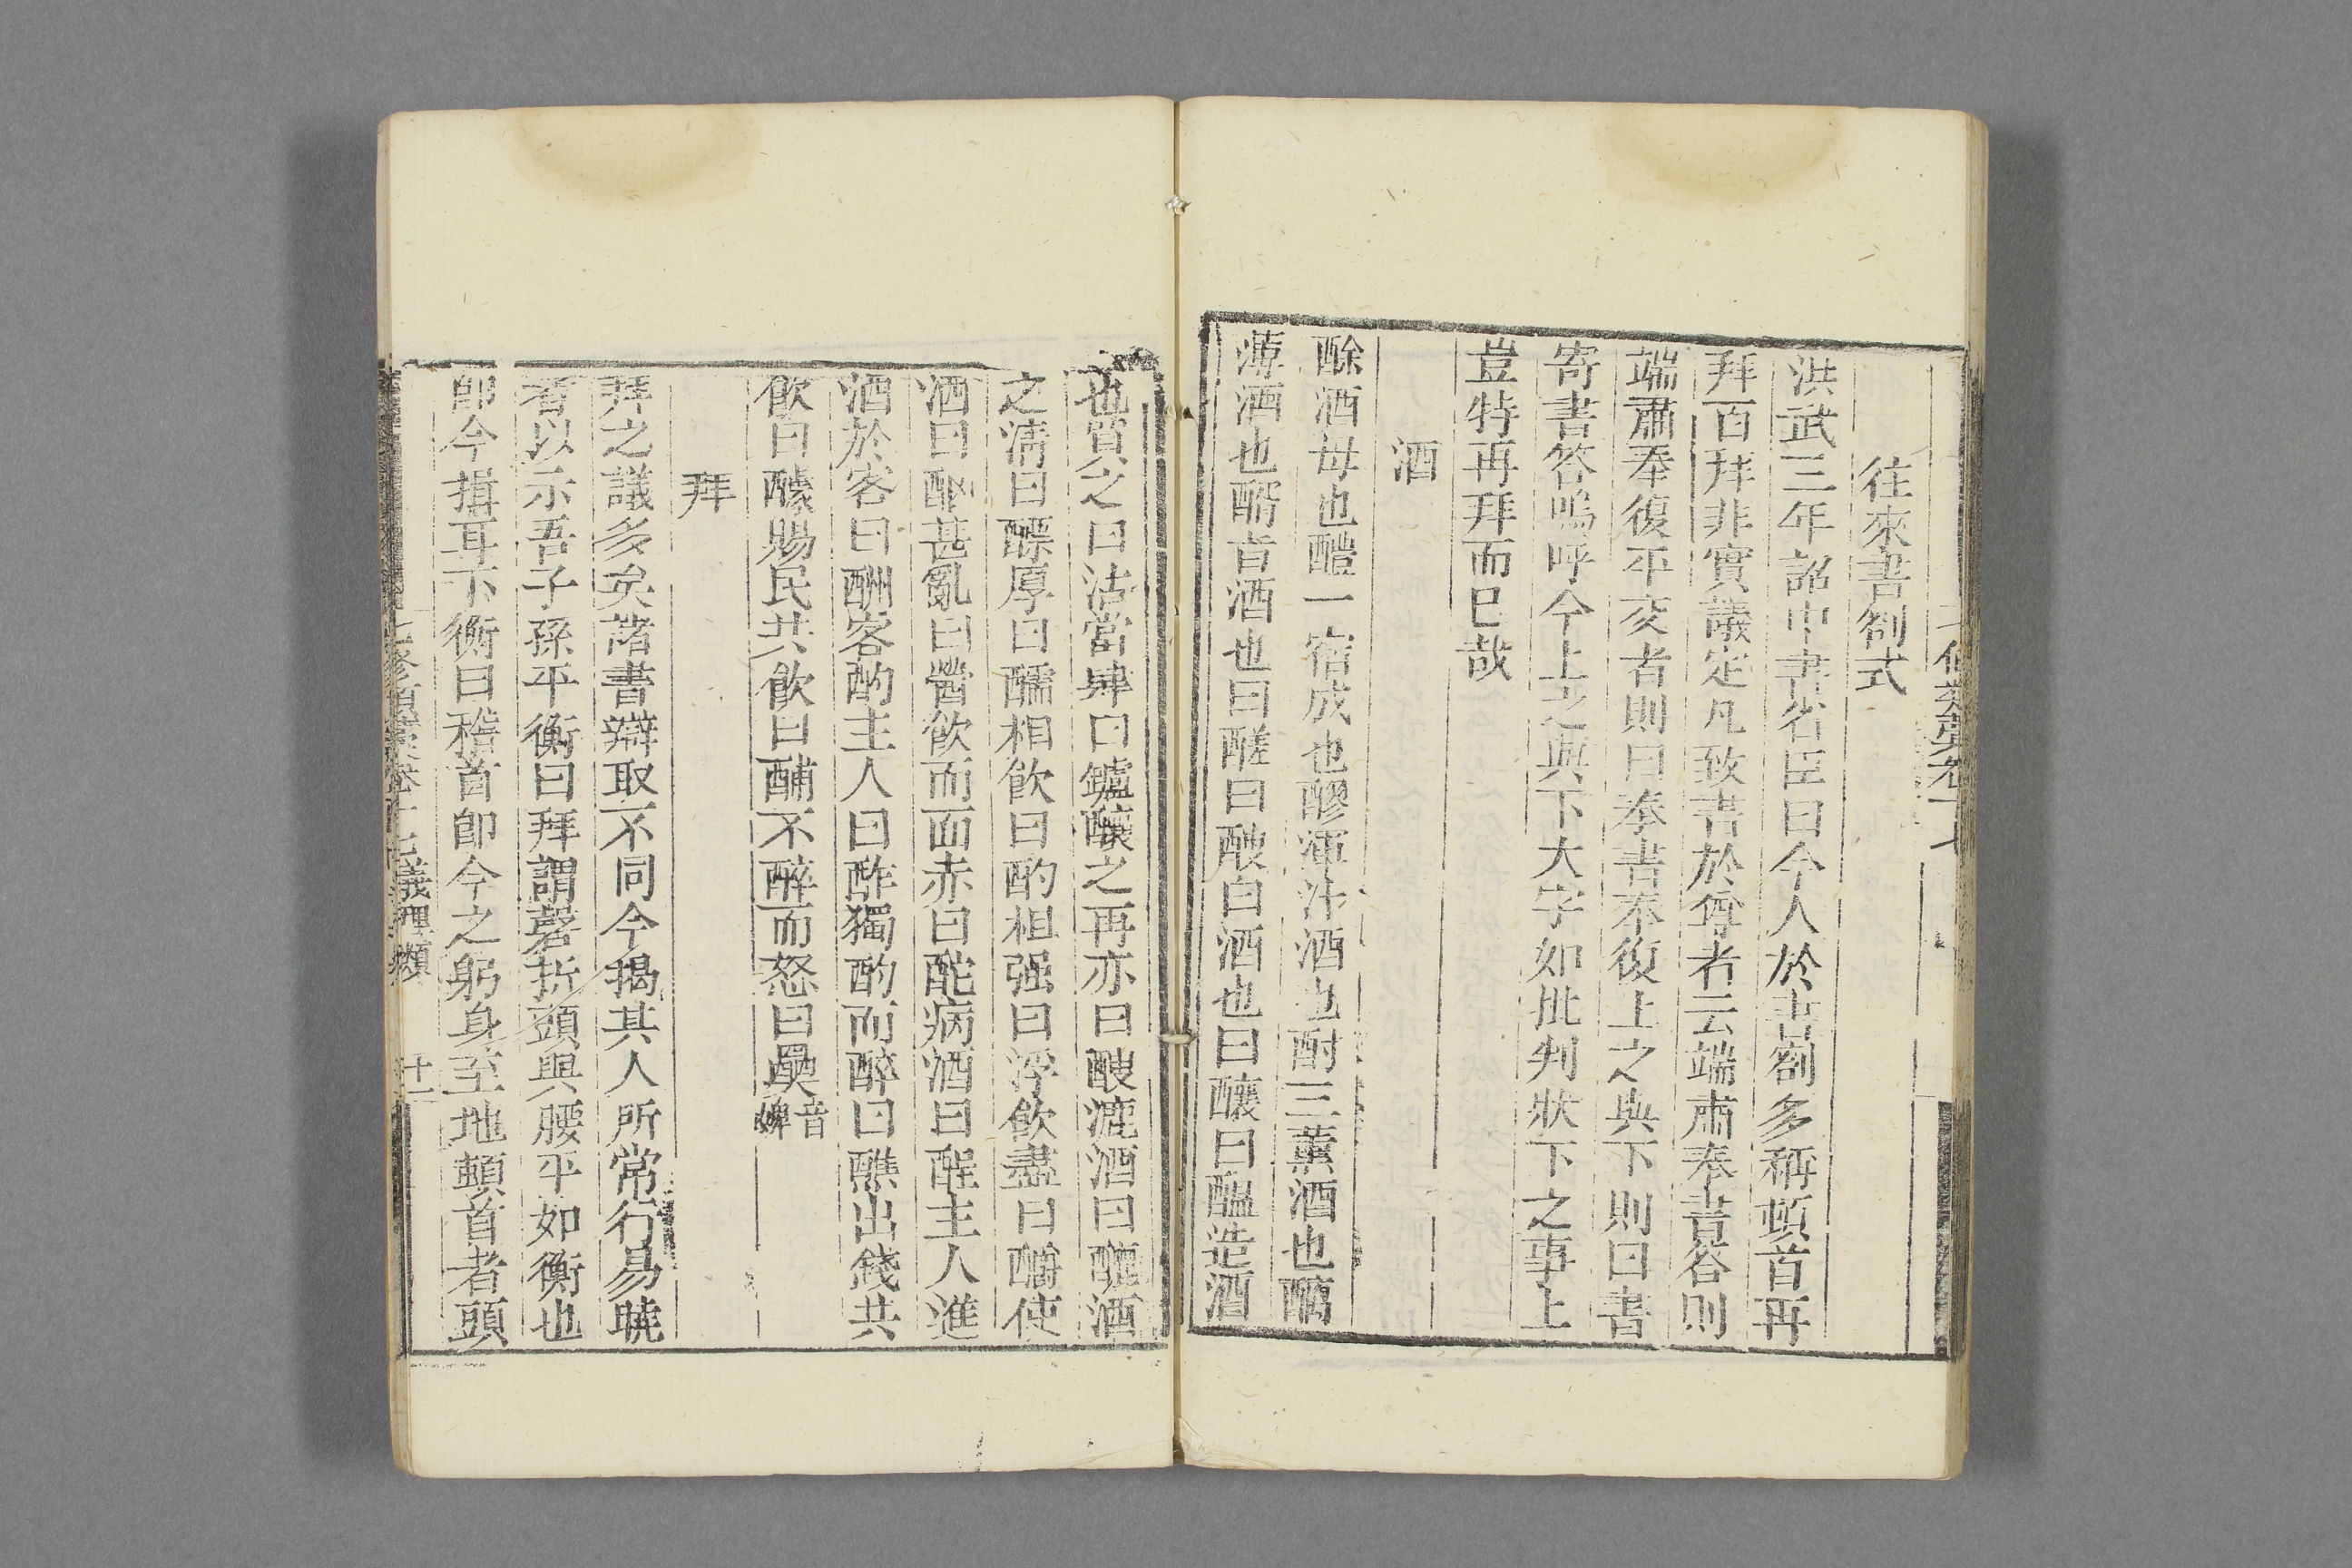 七修類藁卷十七
往來書劄式
洪武三年詔中書省臣曰今人於書劄多稱頓首再
拜百拜非實議定凡致書於尊者云端肅奉書答則
端肅奉復平交者則曰奉書奉復上之與下則曰書
寄書答嗚呼今上之與下大字如批判狀下之事上
豈特再拜而巳哉
酒
酴酒母也醴一宿成也醪渾汁酒也酎三薰酒也醨
薄酒也醑旨酒也曰醝曰醙白酒也曰釀曰醞造酒
也買之曰沽當肆曰鑪釀之再亦曰酘漉酒曰釃酒
之清曰醥厚曰醹相飲曰酌相强曰浮飲盡曰釂使
酒曰酗甚亂曰醟飲而面赤曰酡病酒曰酲主人進
酒於客曰酬客酌主人曰酢獨酌而醉曰醮出錢共
飲曰醵賜民共飲曰酺不醉而怒曰奰音婢
拜
拜之議多矣諸書辯取不同今揭其人所常行易曉
者以示吾子孫平衡曰拜謂磬折頭與腰平如衡也
卽今揖耳下衡曰稽首卽今之躬身至地頓首者頭
七修類藁卷十七義理類 十一